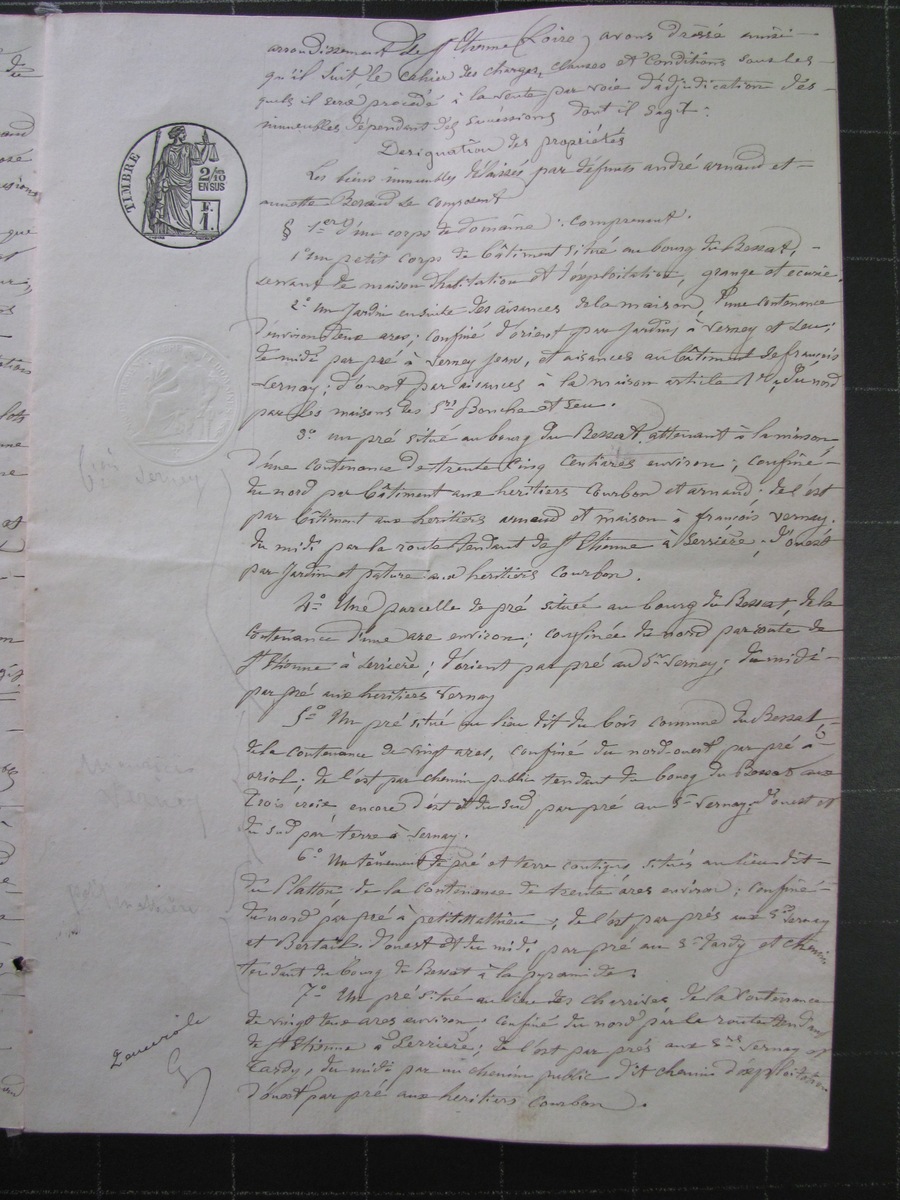 arrondissement de St Etienne (Loire) avons dressé ainsi
qu'il suit le cahier des charges, clauses et conditions sous les-
quels il sera procédé à la vente par voie d'adjudication des
immeubles dépendant des successions dont il sagit :
Designation des propriétés
Les biens immeubles délaissés par défunts andré arnaud et
Beraud se composent
§ 1er d'un corps de domaine : comprenant.
1° un petit corps de bâtiment situé au bourg du Bessat,
servant de maison d'habitation et d'exploitation, grange et ecurie.
2° Un Jardin ensuite des aisances de la maison d'une contenance
d'environ deux ares ; confiné d'orient par Jardins à Verney et Seu ;
de midi par pré à Verney Jean, et aisances au bâtiment de françois
Verney ; d'ouest par aisances à la maison article 1er, du nord
par les maisons des Srs Bonche et Seu.
3° un pré situé au bourg du Bessat, attenant à la maison
d'une contenance de trente cinq centiares environ ; confiné
du nord par bâtiment aux héritiers Courbon et arnaud ; de l'est
par bâtiment aux heritiers arnaud et maison à françois Verney.
du midi par la route tendant de St Etienne à Serrière ; d'ouest
par Jardin et pature aux heritiers Courbon.
4° Une parcelle de pré située au bourg du Bessat, de la
contenance d'une are environ ; confinée du nord par route de
St Etienne à Serrière ; d'orient par pré au Sr Verney ; du midi
par pré aux heritiers Verney
5° Un pré situé au lieu dit du bois commune du Bessat
de la contenance de vingt ares, confiné du nord-ouest par pré à
oriol ; de l'est par chemin public tendant du bourg du Bessat aux
trois croix encore d'est et du sud par pré au Sr Verney ; d'ouest et
du sud par terre à Verney.
6° Un tènement de pré et terre contigus situés au lieu dit
du Platton de la contenance de trente ares environ ; confiné
du nord par pré à petit Mathieu ; de l'est par prés aux Srs Verney
et Bertail. d'ouest et du midi par pré au Sr Tardy et chemin
tendant du bourg du Bessat à la pyramide.
7° Un pré situé au lieu des charrires de la contenance
de vingt deux ares environ. confiné du nord par la route tendant
de St Etienne à Serrière ; de l'est par prés aux Srs Verney et
Tardy, du midi par un chemin public dit chemin d'exploitation
d'ouest par pré aux heritiers Courbon.
TIMBRE
2/10
EN SUS
F.
1.
Verney
Verney
petit
mathieu